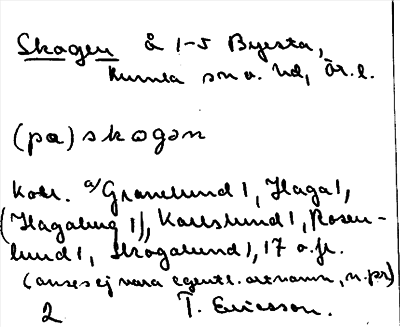 Skogen å 1-5 Byesta,
Kumla sn o. hd, Ör. l.
(på) skogən
Koll. a/ Granelund 1, Haga 1,
(Hagaberg 1), Karlslund 1, Rosen-
lund 1, Skogalund 1, 17 o. fl.
(anses ej vara egentl. ortnamn, n. pr)
2 T. Ericsson.